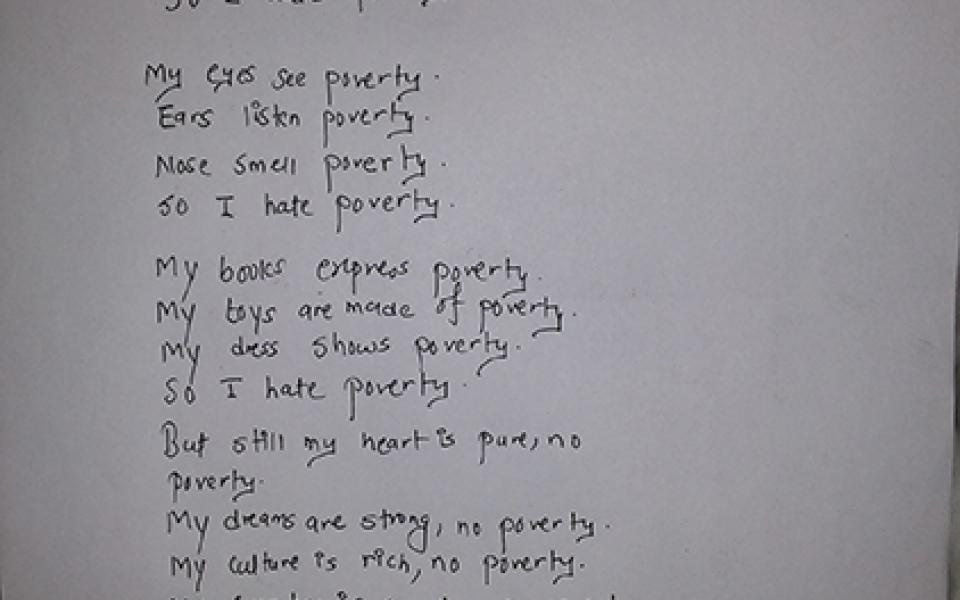 So I hate
My eyes see poverty.
Ears listen poverty.
Nose smell poverty.
So I hate poverty.
My books express poverty.
My toys are made of poverty.
My dress shows poverty.
So I hate poverty.
But still my heart is pure, no
poverty.
My dreams are strong, no poverty.
My culture is rich, no poverty.